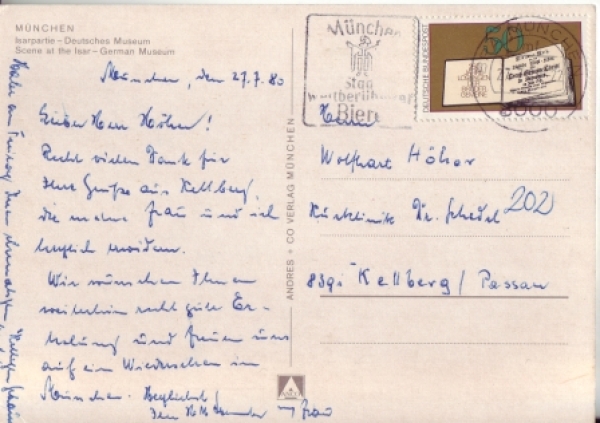 MÜNCHEN
Isarpartie – Deutsches Museum
Scene at the Isar – German Museum
München, den 27.7.80
Lieber Herr Höher!
Recht vielen Dank für
Ihre Grüße aus Kellberg,
die meine Frau und ich
herzlich erwidern.
Wir wünschen Ihnen
weiterhin recht gute Er-
holung und freuen uns
auf ein Wiedersehen in
München. Herzlichst
Ihr
und Frau
Habe am Freitag Ihren ehemaligen Kollegen
ANDRES + CO VERLAG MÜNCHEN
München
Stadt
weltberühmter
Biere
DEUTSCHE BUNDESPOST
50
MÜNCHEN
8000
Herrn
Wolfhart Höher
Kurklinik Dr. Schedel 202
8391 Kellberg / Passau